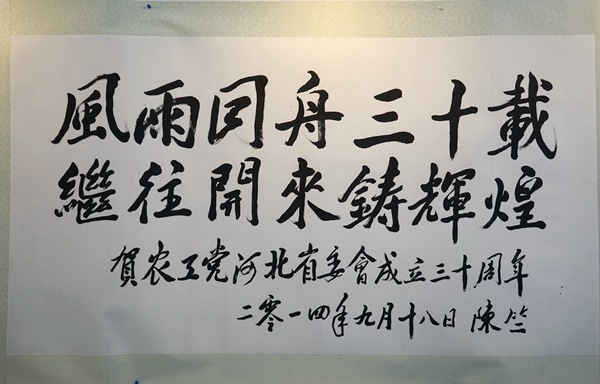 風雨同舟三十載
繼往開來鑄輝煌
賀农工党河北省委會成立三十周年
二零一四年九月十八日 陳竺